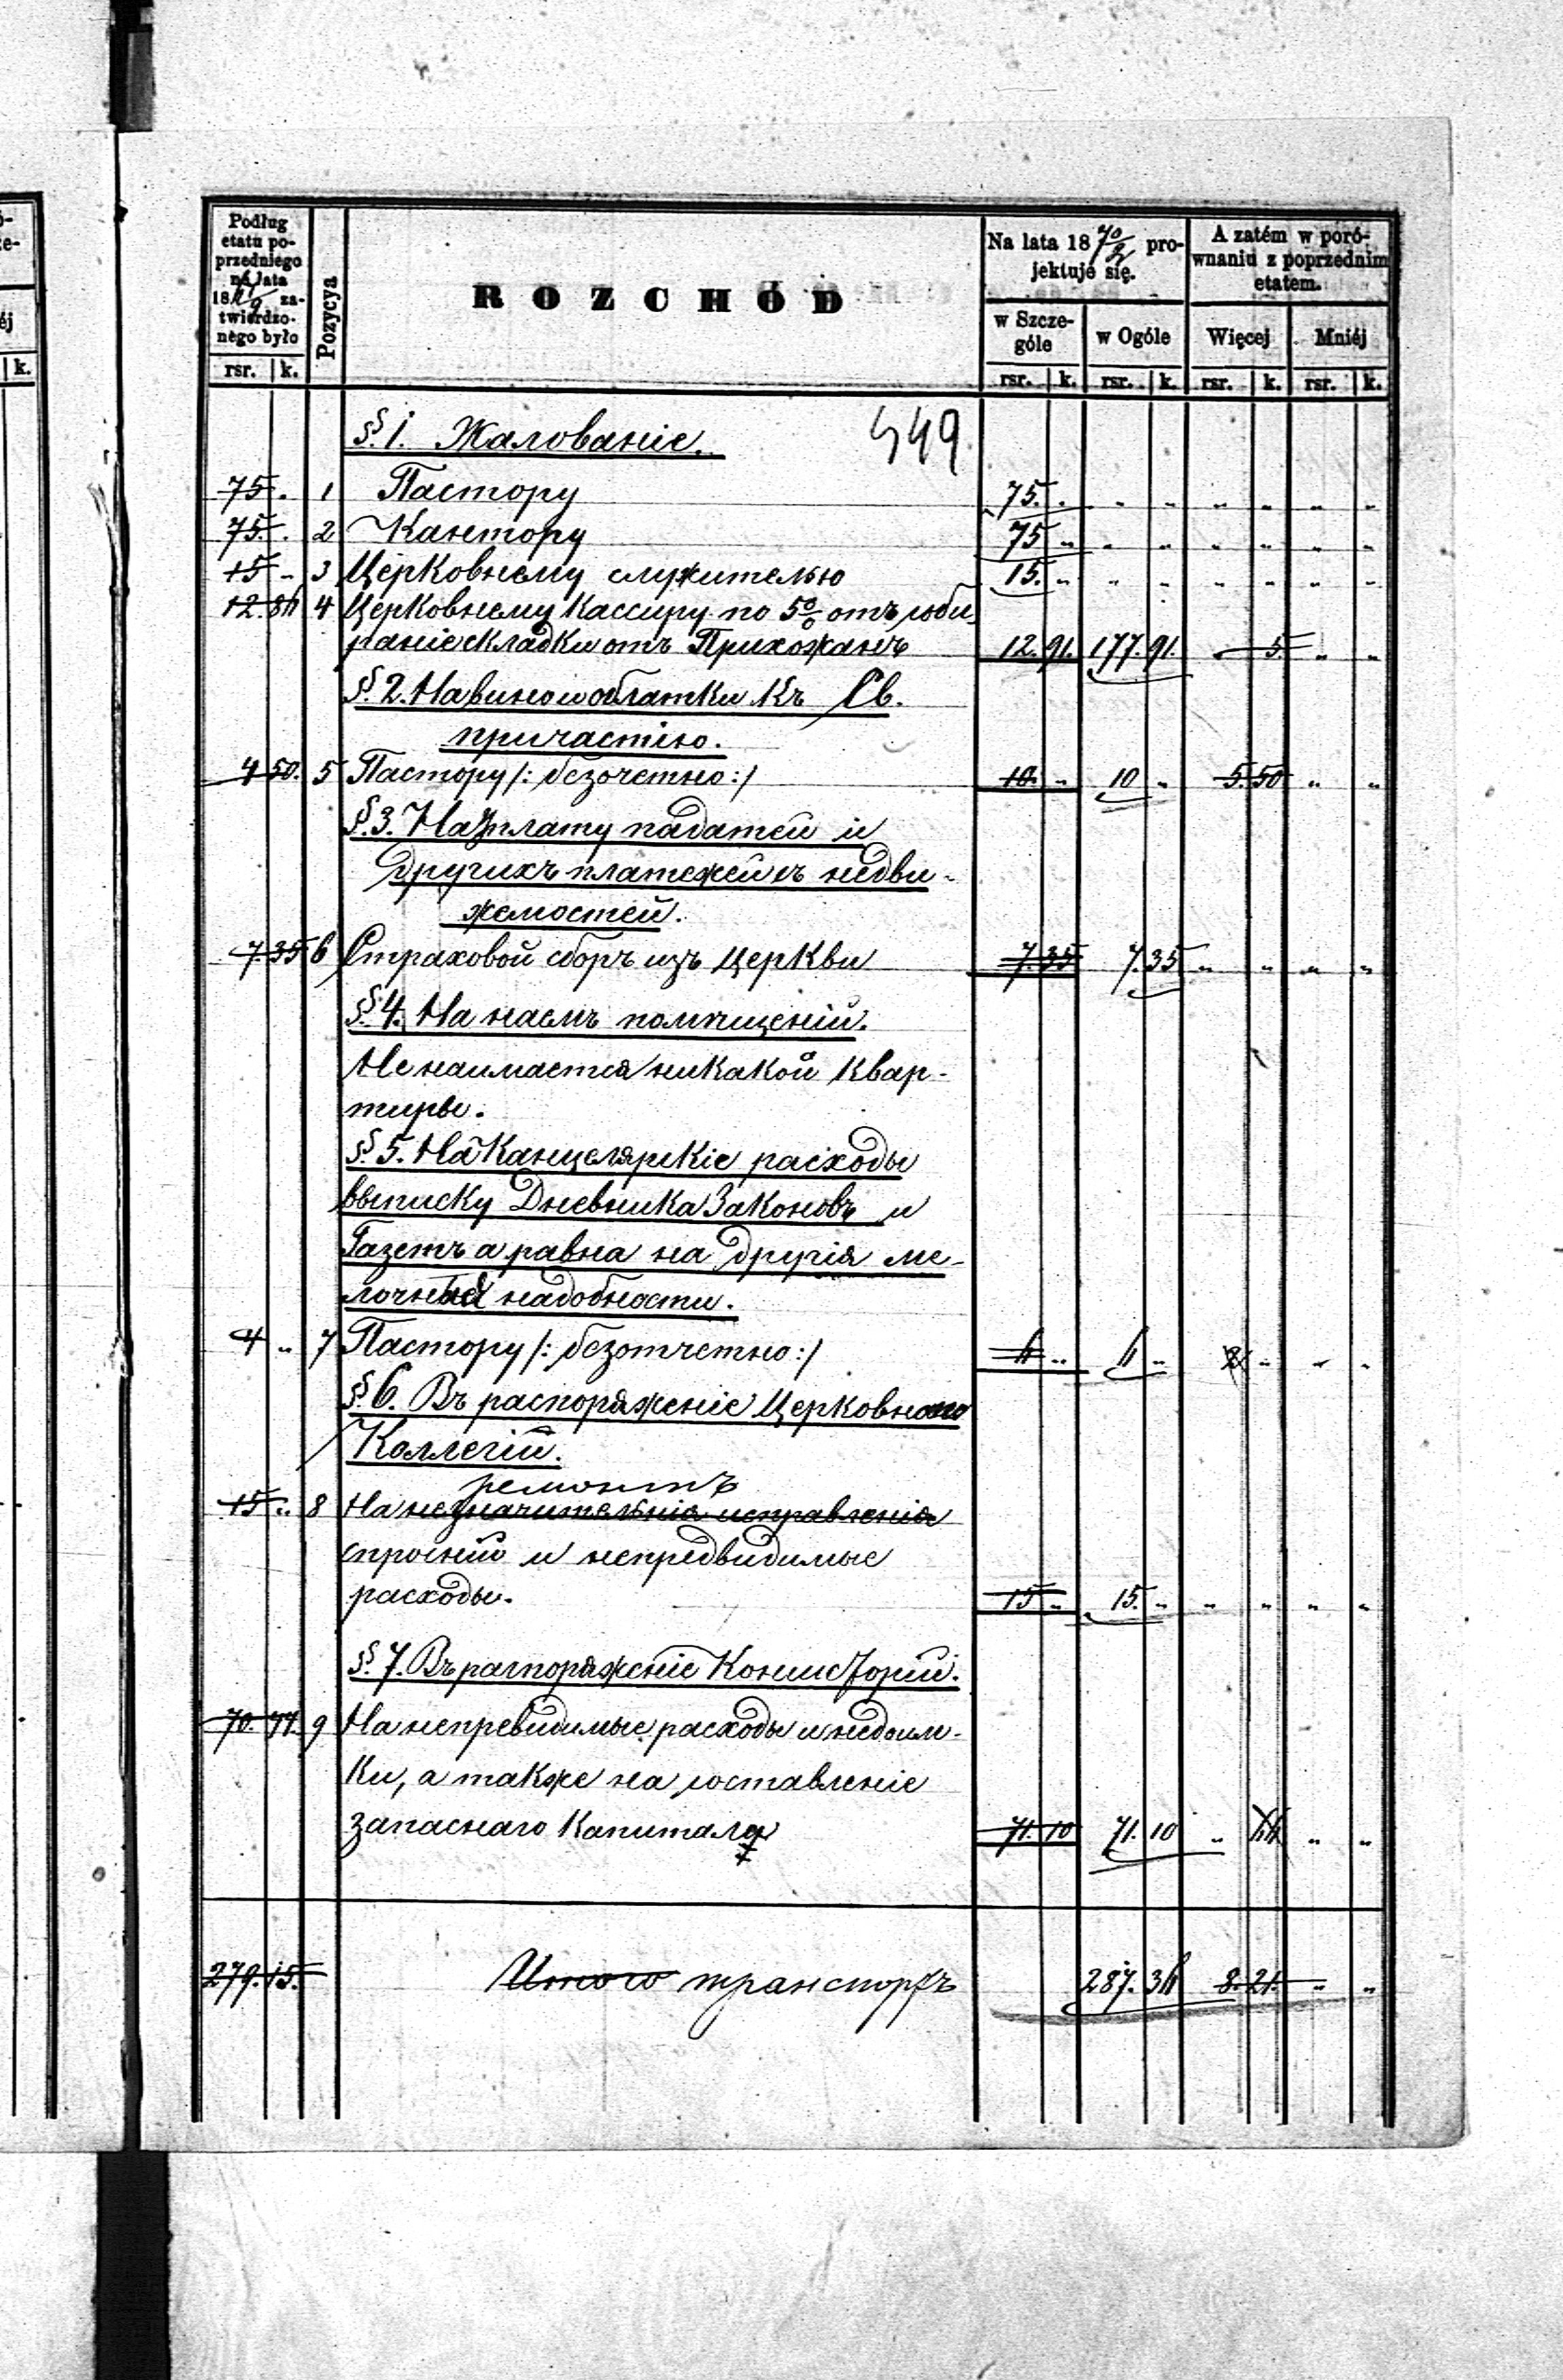 Podług etatu poprzedniego na lata 18 67/9 zatwierdzonego było
rsr. k.
Pozycya
ROZCHÓD
Na lata 18 70/2 projektuje się.
w Szczególe
w Ogóle
rsr. k. rsr. k.
A zatém w porównaniu z poprzednim etatem.
Więcej
Mniéj
rsr. k. rsr. k.
§. 1. Жалованіе. 549
75 . 1 Пастору 75. . „ „ „ „ „ „
75. . 2 Кантору 75 „ „ „ „ „ „ „
15 „ 3 Церковнему служителью 15. „ „ „ „ „ „ „
12. 86 4 Церковнему Кассиру по 5% отъ соби-
раніе складки отъ Прихожанъ 12. 91. 177. 91. „ 5. „ „
§. 2. На вино и облатки къ Св.
причастію.
4 50. 5 Пастору /: безочетно :/ 10. „ 10 „ 5. 50 „ „
§. 3. На уплату падатей и
другихъ платежей съ недви-
жемостей.
7. 35 6 Страховой сборъ изъ церкви 7. 35 7. 35 „ „ „ „
§. 4. На наемъ помѣщеній.
Не наимается никакой квар-
тиры.
§. 5. На Канцелярскіе расходы
выписку Дневника Законовъ и
Газетъ а равна на другія ме-
лочныя надобности.
4 „ 7 Пастору /: безотчетно :/ 6 „ 6 „ 2 „ „ „
§. 6. Въ распоряженіе Церковного
Коллегіи.
ремонтъ
15 „ 8 На незначительнія исправленія
строеній и непредвидимые
расходы. 15 „ 15. „ „ „ „ „
§. 7. Въ распоряженіе Консисторіи.
70. 44. 9 На непревидимые расходы и недоим-
ки, а также на составленіе
запаснаго Капитала 71. 10 71. 10 „ 66 „ „
279. 15. Итого транспортъ 287. 36 8. 21. „ „